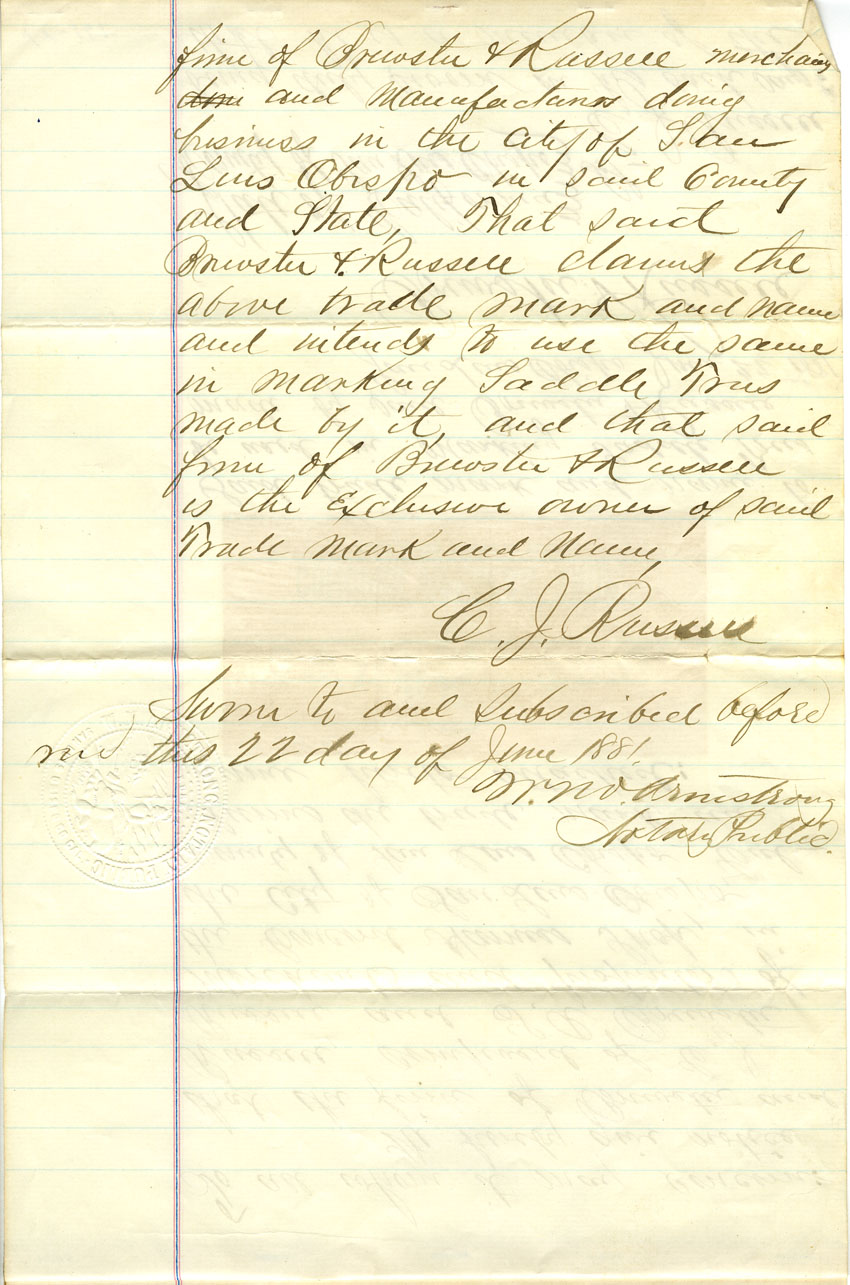 firm of Brewster & Russell merchants
doin and Manufacturers doing
business in the City of San
Luis Obispo in said County
and State, That said
Brewster & Russell claims the
above trade mark and name
and intends to use the same
in marking Saddle Trees
made by it, and that said
firm of Brewster & Russell
is the Exclusive owner of said
Trade Mark and Name,
C. J. Russell
Sworn to and subscribed before
me this 22 day of June 1881.
Armstrong
Notary Public.